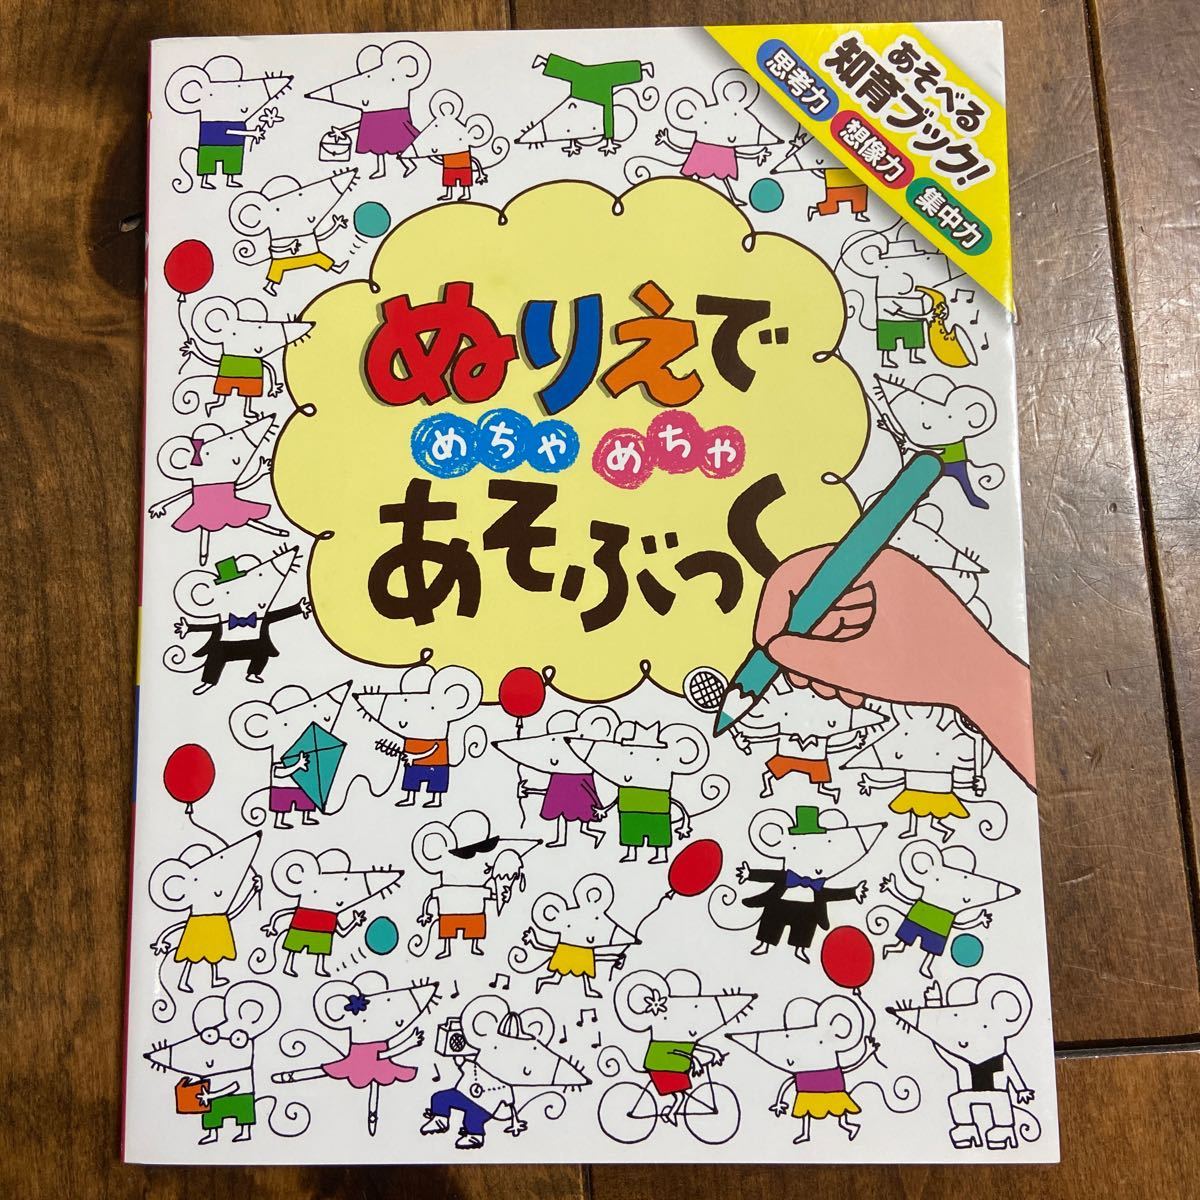 あそべる
知育ブック!
思考力
想像力
集中力
ぬりえで
めちゃ めちゃ
あそぶっく